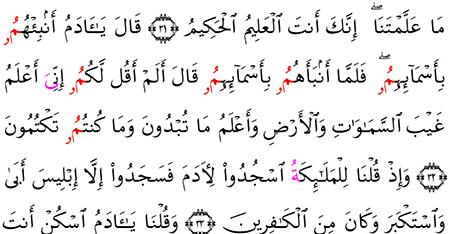 مَا عَلَّمْتَنَاۖ إِنَّكَ أَنتَ ٱلْعَلِيمُ ٱلْحَكِيمُ ۝٣١ قَالَ يَـٰٓـَٔادَمُ أَنۢبِئْهُمُۥ
بِأَسْمَآئِهِمُۥۖ فَلَمَّا أَنۢبَأَهُمُۥ بِأَسْمَآئِهِمُۥ قَالَ أَلَمْ أَقُل لَّكُمُۥ إِنِّيَ أَعْلَمُ
غَيْبَ ٱلسَّمَٰوَٰتِ وَٱلْأَرْضِ وَأَعْلَمُ مَا تُبْدُونَ وَمَا كُنتُمُۥ تَكْتُمُونَ
۝٣٢ وَإِذْ قُلْنَا لِلْمَلَٰٓئِكَةُ ٱسْجُدُواْ لِأٓدَمَ فَسَجَدُواْ إِلَّا إِبْلِيسَ أَبَىٰ
وَٱسْتَكْبَرَ وَكَانَ مِنَ ٱلْكَٰفِرِينَ ۝٣٣ وَقُلْنَا يَـٰٓـَٔادَمُ ٱسْكُنْ أَنتَ